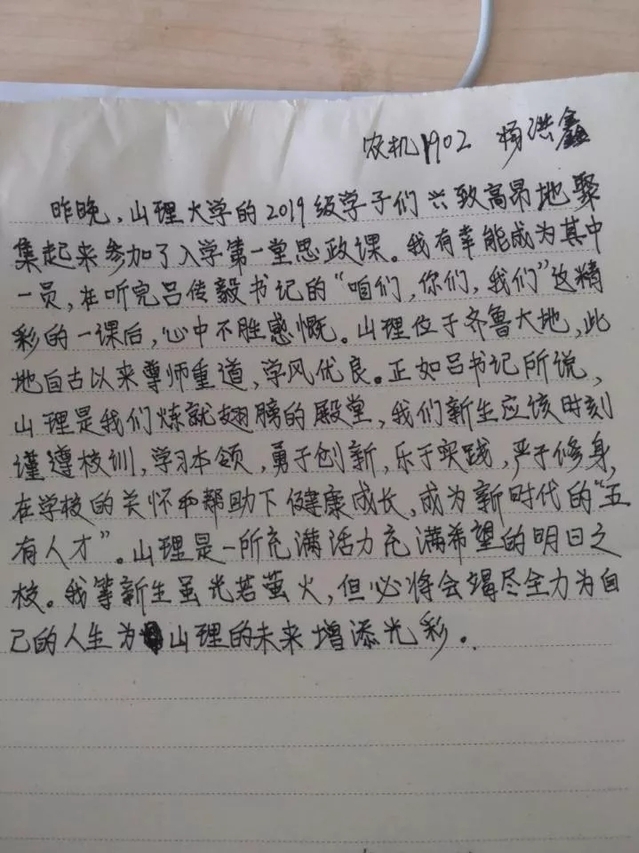 农机1902 杨洪鑫
昨晚，山理大学的2019级学子们兴致高昂地聚
集起来参加了入学第一堂思政课。我有幸能成为其中
一员，在听完吕传毅书记的“咱们，你们，我们”这精
彩的一课后，心中不胜感慨。山理位于齐鲁大地，此
地自古以来尊师重道，学风优良。正如吕书记所说，
山理是我们炼就翅膀的殿堂，我们新生应该时刻
谨遵校训，学习本领，勇于创新，乐于实践，严于修身，
在学校的关怀和帮助下健康成长，成为新时代的“五
有人才”。山理是一所充满活力充满希望的明日之
校。我等新生虽光若萤火，但必将会竭尽全力为自
己的人生为山理的未来增添光彩。